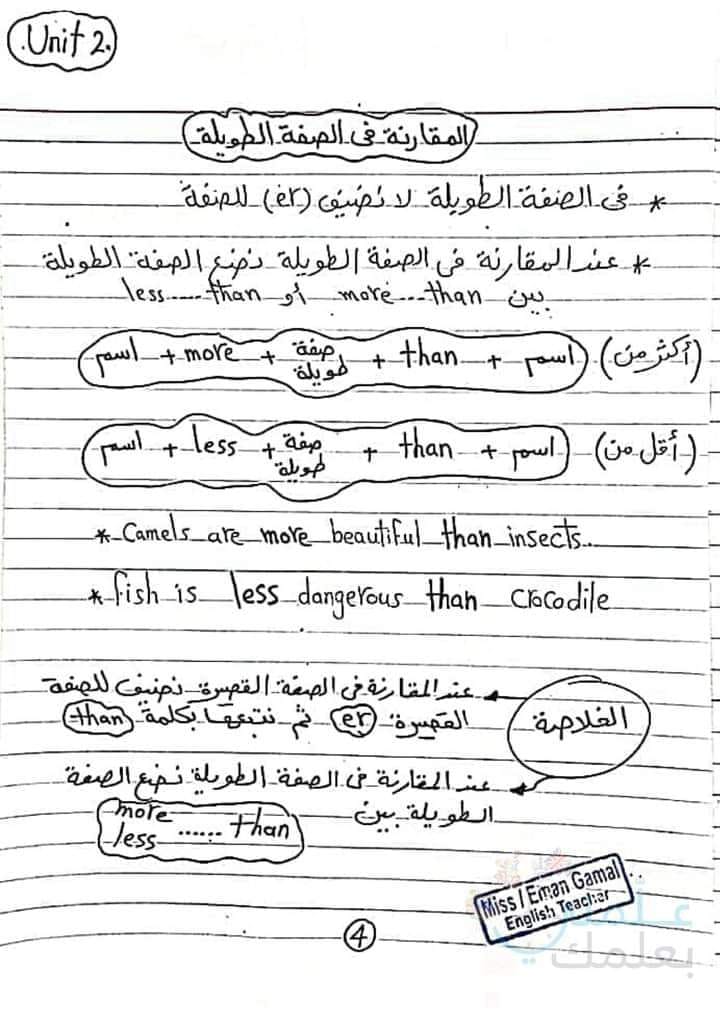 Unit 2.
المقارنة فى الصفة الطويلة
* فى الصفة الطويلة لا نضيف (er) للصفة
* عند المقارنة فى الصفة الطويلة نضع الصفة الطويلة
بين more...than أو less......than
(أكثر من) اسم + more + صفة طويلة + than + اسم
(أقل من) اسم + less + صفة طويلة + than + اسم
* Camels are more beautiful than insects.
* fish is less dangerous than crocodile
الخلاصة
عند المقارنة فى الصفة القصيرة نضيف للصفة
القصيرة er ثم نتبعها بكلمة than
عند المقارنة فى الصفة الطويلة نضع الصفة
الطويلة بين
more
less ...... than
Miss / Eman Gamal
English Teacher
علمني بعلمك
4